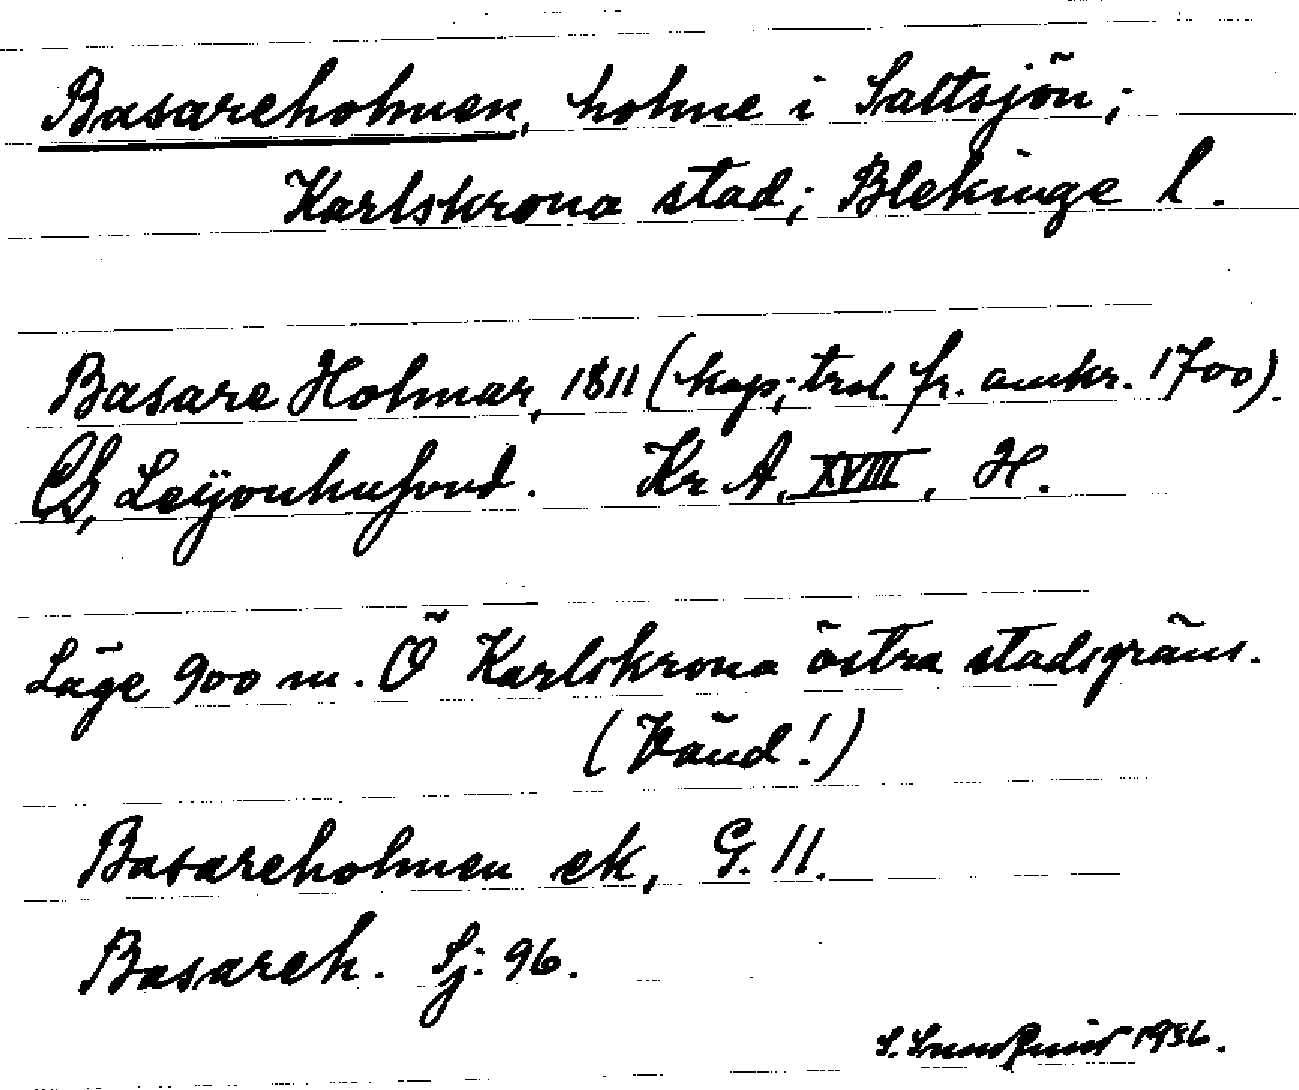 Basareholmen, holme i Saltsjön;
Karlskrona stad; Blekinge l.
Basare Holmar, 1811 (kop; trol. fr. omkr. 1700).
CB, Leijonhufvud. Kr A, XVIII, H.
Läge 900 m. Ö Karlskrona östra stadsgräns.
(Vänd!)
Basareholmen ek, G. 11.
Basareh. Sj: 96.
S. 1936.